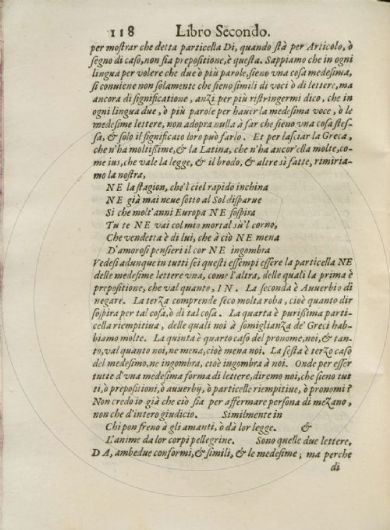 118 Libro Secondo.
per mostrar che detta particella Di, quando stà per Articolo, ò
segno di caso, non sia prepositione, è questa. Sappiamo che in ogni
lingua per volere che due ò più parole, sieno vna cosa medesima,
si conuiene non solamente che sieno simili di voci ò di lettere, ma
ancora di significatione, anzi per più ristringermi dico, che in
ogni lingua due, ò più parole per hauer la medesima voce, ò le
medesime lettere, non adopra nulla à far che sieno vna cosa stes-
sa, & solo il significato loro può farlo. Et per lasciar la Greca,
che n'ha moltissime, & la Latina, che n'ha ancor'ella molte, co-
me ius, che vale la legge, & il brodo, & altre sì fatte, rimiria-
mo la nostra,
NE la stagion, che'l ciel rapido inchina
NE già mai neue sotto al Sol disparue
Sì che molt'anni Europa NE sospira
Tu te NE vai col mio mortal su'l corno,
Che vendetta è di lui, che à ciò NE mena
D'amorosi pensieri il cor NE ingombra
Vedesi adunque in tutti sei questi essempi essere la particella NE
delle medesime lettere vna, come l'altra, delle quali la prima è
prepositione, che val quanto, IN. La seconda è Auuerbio di
negare. La terza comprende seco molta roba, cioè quanto dir
sospira per tal cosa, ò di tal cosa. La quarta è purissima parti-
cella riempitiua, delle quali noi à somiglianza de' Greci hab-
biamo molte. La quinta è quarto caso del pronome, noi, & tan-
to, val quanto noi, ne mena, cioè mena noi. La sesta è terzo caso
del medesimo, ne ingombra, cioè ingombra à noi. Onde per esser
tutte d'vna medesima forma di lettere, diremo noi, che sieno tut
ti, ò prepositioni, ò auuerbij, ò particelle riempitiue, ò pronomi?
Non credo io già che ciò sia per affermare persona di mezano,
non che d'intero giudicio. Similmente in
Chi pon freno à gli amanti, ò dà lor legge. &
L'anime da lor corpi pellegrine. Sono quelle due lettere,
DA, ambedue conformi, & simili, & le medesime, ma perche
di